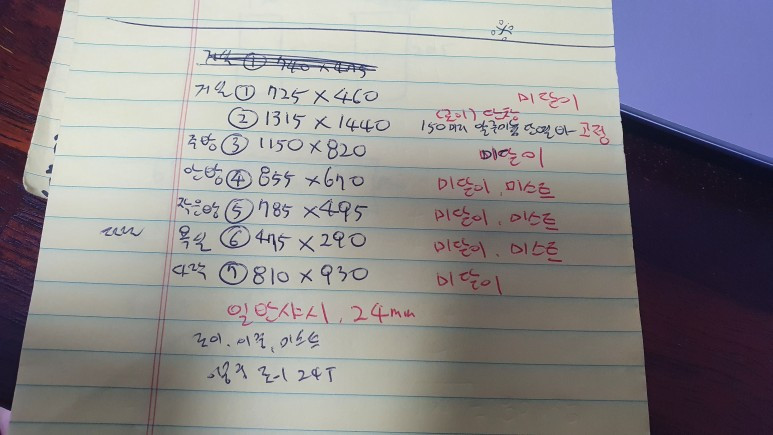 거실 ① 740 × 475
거실 ① 725 × 460 미닫이
② 1315 × 1440 (로이) 단창 150mm 알루미늄 단열바 고정
주방 ③ 1150 × 820 미닫이
안방 ④ 855 × 670 미닫이, 미스트
작은방 ⑤ 785 × 495 미닫이, 미스트
욕실 ⑥ 475 × 290 미닫이, 미스트
다락 ⑦ 810 × 930 미닫이
일반샤시, 24mm
로이, 이중, 미스트
로이 24T